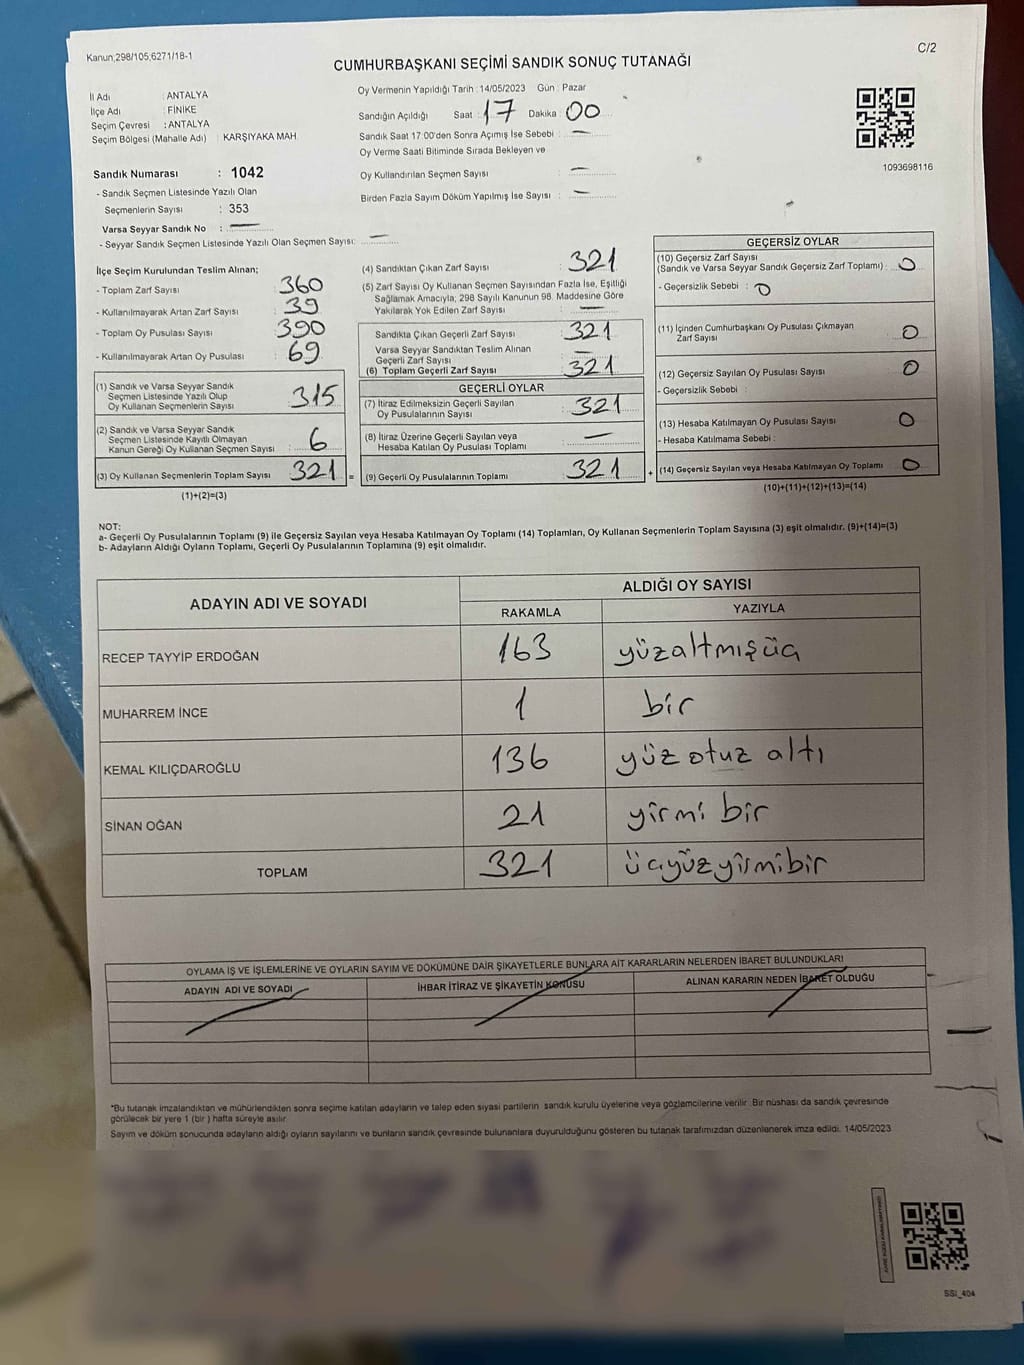 Kanun,298/105;6271/18-1
C/2
CUMHURBAŞKANI SEÇİMİ SANDIK SONUÇ TUTANAĞI
İl Adı : ANTALYA
İlçe Adı : FİNİKE
Seçim Çevresi : ANTALYA
Seçim Bölgesi (Mahalle Adı) : KARŞIYAKA MAH.
Sandık Numarası : 1042
- Sandık Seçmen Listesinde Yazılı Olan
Seçmenlerin Sayısı : 353
Varsa Seyyar Sandık No : —
- Seyyar Sandık Seçmen Listesinde Yazılı Olan Seçmen Sayısı: —
Oy Vermenin Yapıldığı Tarih : 14/05/2023 Gün : Pazar
Sandığın Açıldığı Saat : 17 Dakika : 00
Sandık Saat 17:00'den Sonra Açımış İse Sebebi : —
Oy Verme Saati Bitiminde Sırada Bekleyen ve
Oy Kullandırılan Seçmen Sayısı : —
Birden Fazla Sayım Döküm Yapılmış İse Sayısı : —
1093698116
İlçe Seçim Kurulundan Teslim Alınan;
- Toplam Zarf Sayısı : 360
- Kullanılmayarak Artan Zarf Sayısı : 39
- Toplam Oy Pusulası Sayısı : 390
- Kullanılmayarak Artan Oy Pusulası : 69
(1) Sandık ve Varsa Seyyar Sandık
Seçmen Listesinde Yazılı Olup
Oy Kullanan Seçmenlerin Sayısı : 315
(2) Sandık ve Varsa Seyyar Sandık
Seçmen Listesinde Kayıtlı Olmayan
Kanun Gereği Oy Kullanan Seçmen Sayısı : 6
(3) Oy Kullanan Seçmenlerin Toplam Sayısı : 321 =
(1)+(2)=(3)
(4) Sandıktan Çıkan Zarf Sayısı : 321
(5) Zarf Sayısı Oy Kullanan Seçmen Sayısından Fazla İse, Eşitliği
Sağlamak Amacıyla; 298 Sayılı Kanunun 98. Maddesine Göre
Yakılarak Yok Edilen Zarf Sayısı : —
Sandıkta Çıkan Geçerli Zarf Sayısı : 321
Varsa Seyyar Sandıktan Teslim Alınan
Geçerli Zarf Sayısı : —
(6) Toplam Geçerli Zarf Sayısı : 321
GEÇERLİ OYLAR
(7) İtiraz Edilmeksizin Geçerli Sayılan
Oy Pusulalarının Sayısı : 321
(8) İtiraz Üzerine Geçerli Sayılan veya
Hesaba Katılan Oy Pusulası Toplamı : —
(9) Geçerli Oy Pusulalarının Toplamı : 321 +
GEÇERSİZ OYLAR
(10) Geçersiz Zarf Sayısı
(Sandık ve Varsa Seyyar Sandık Geçersiz Zarf Toplamı) : 0
- Geçersizlik Sebebi : 0
(11) İçinden Cumhurbaşkanı Oy Pusulası Çıkmayan
Zarf Sayısı : 0
(12) Geçersiz Sayılan Oy Pusulası Sayısı : 0
- Geçersizlik Sebebi :
(13) Hesaba Katılmayan Oy Pusulası Sayısı : 0
- Hesaba Katılmama Sebebi :
(14) Geçersiz Sayılan veya Hesaba Katılmayan Oy Toplamı : 0
(10)+(11)+(12)+(13)=(14)
NOT:
a- Geçerli Oy Pusulalarının Toplamı (9) ile Geçersiz Sayılan veya Hesaba Katılmayan Oy Toplamı (14) Toplamları, Oy Kullanan Seçmenlerin Toplam Sayısına (3) eşit olmalıdır. (9)+(14)=(3)
b- Adayların Aldığı Oyların Toplamı, Geçerli Oy Pusulalarının Toplamına (9) eşit olmalıdır.
ADAYIN ADI VE SOYADI ALDIĞI OY SAYISI
RAKAMLA YAZIYLA
RECEP TAYYİP ERDOĞAN 163 yüzaltmışüç
MUHARREM İNCE 1 bir
KEMAL KILIÇDAROĞLU 136 yüz otuz altı
SİNAN OĞAN 21 yirmi bir
TOPLAM 321 üçyüzyirmibir
OYLAMA İŞ VE İŞLEMLERİNE VE OYLARIN SAYIM VE DÖKÜMÜNE DAİR ŞİKAYETLERLE BUNLARA AİT KARARLARIN NELERDEN İBARET BULUNDUKLARI
ADAYIN ADI VE SOYADI İHBAR İTİRAZ VE ŞİKAYETİN KONUSU ALINAN KARARIN NEDEN İBARET OLDUĞU
*Bu tutanak imzalandıktan ve mühürlendikten sonra seçime katılan adayların ve talep eden siyasi partilerin sandık kurulu üyelerine veya gözlemcilerine verilir. Bir nüshası da sandık çevresinde
görülecek bir yere 1 (bir) hafta süreyle asılır.
Sayım ve döküm sonucunda adayların aldığı oyların sayılarını ve bunların sandık çevresinde bulunanlara duyurulduğunu gösteren bu tutanak tarafımızdan düzenlenerek imza edildi. 14/05/2023
SSI_404